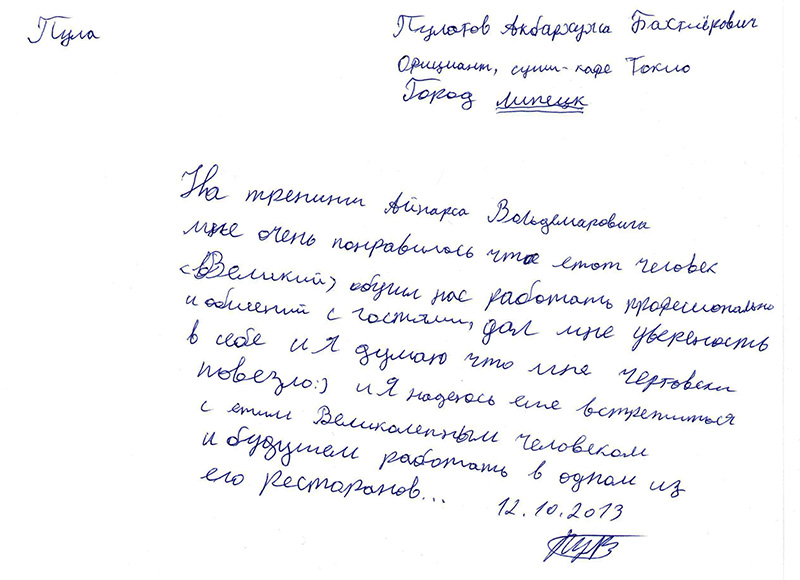 Пула
Пулотов Акбархужа Бахтиёрович
Официант, суши-кафе Токио
Город Липецк
На тренинги Айнарса Вольдемаровича
мне очень понравилось что етот человек
(Великий) обучил нас работать професионально
и обшений с гостями, дал мне увереность
в себе и Я думаю что мне чертовски
повезло:) и Я надеюсь еше встретиться
с етим Великолепным человеком
и будушем работать в одном из
его ресторанов...
12.10.2013